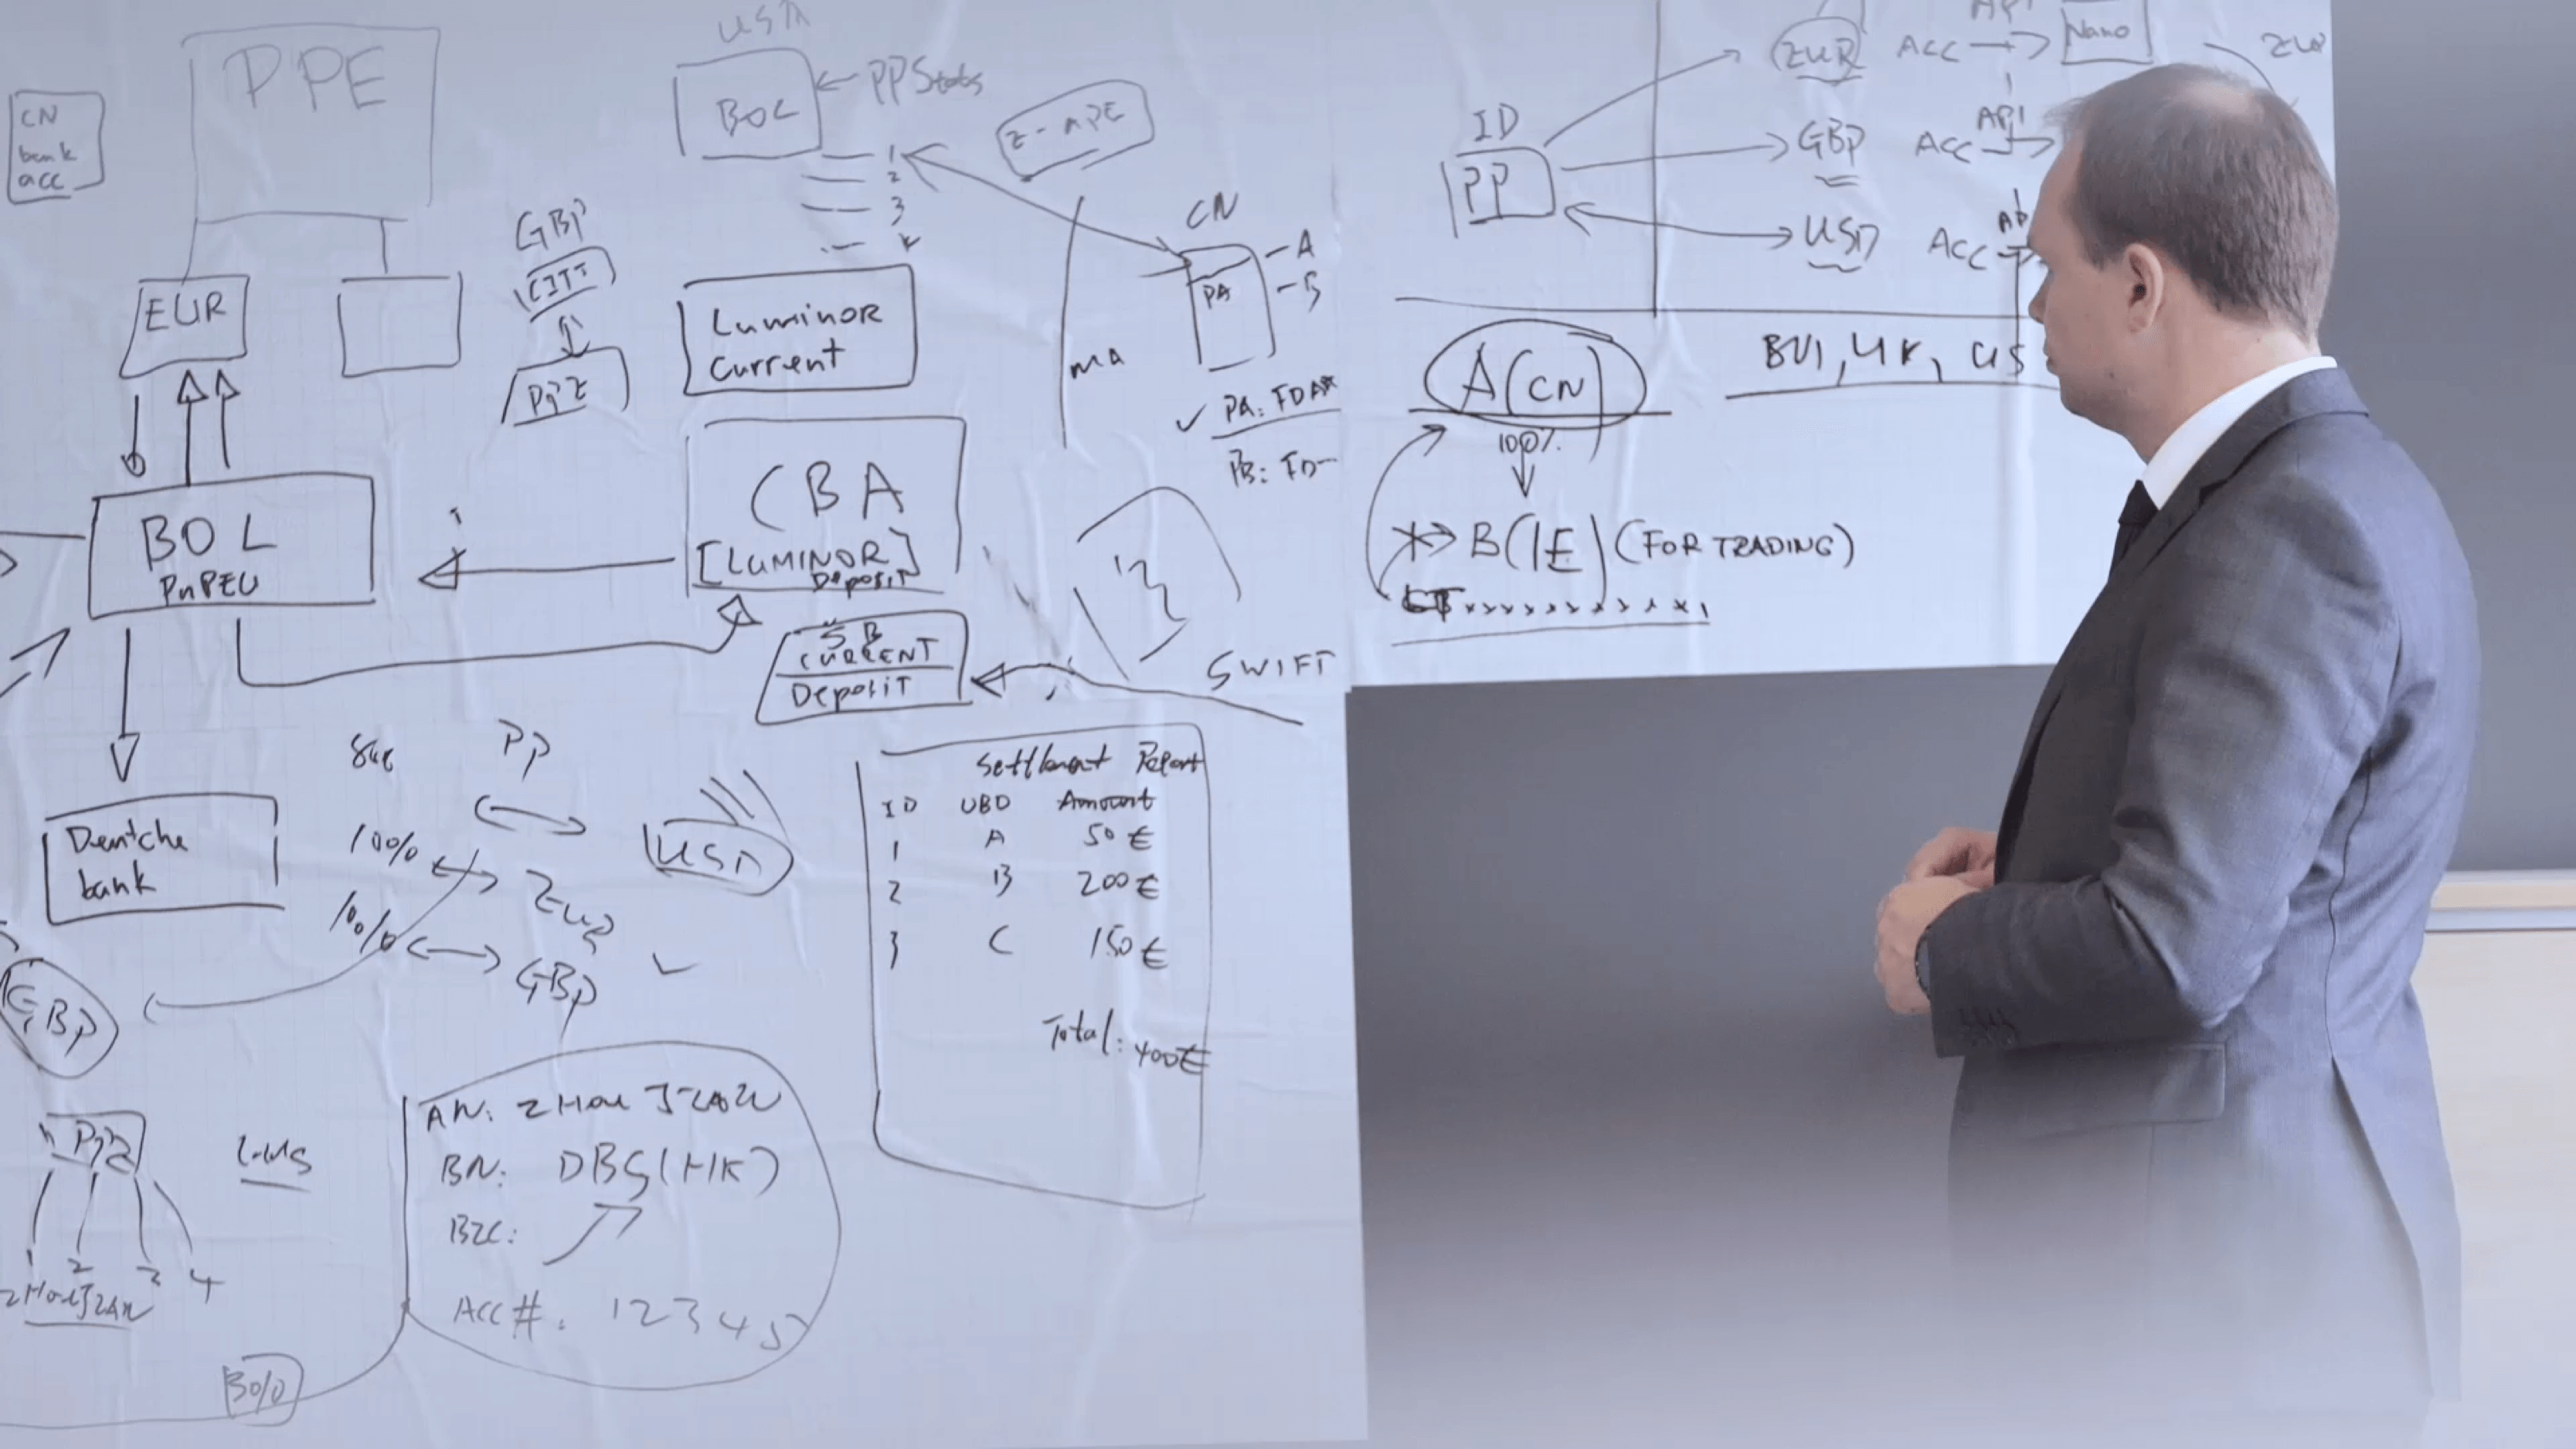 CN
bank
acc
PPE
EUR
BOL
PnPEU
Deutche
bank
GBP
USD
BOL
PPStats
1
2
3
GBP
Luminor
Current
CBA
[LUMINOR]
Deposit
SB
CURRENT
Deposit
SWIFT
CN
A
B
PA
PA: FDA
PB: FD
ma
PP
100%
100%
EUR
GBP
USD
Settlement Report
ID UBO Amount
1 A 50€
2 B 200€
3 C 150€
Total: 400€
1 2 3 4
AN:
BN: DBS(HK)
Acc#. 12345
ID
PP
EUR Acc → Nano
API
GBP Acc
API
USD Acc
EUR
BVI, UK, US
A(CN)
100%
B(IE) (FOR TRADING)